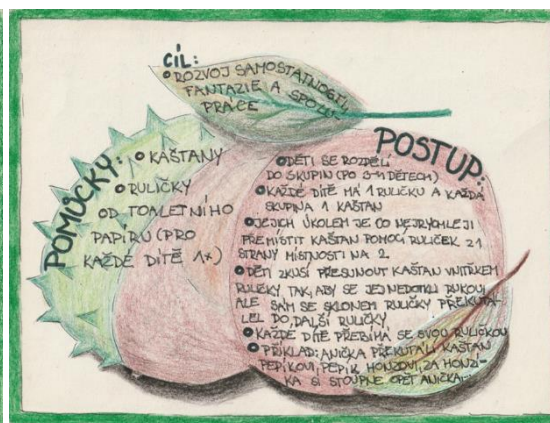 CÍL:
ROZVOJ SAMOSTATNOSTI,
FANTAZIE A SPOLU-
PRÁCE
POMŮCKY:
KAŠTANY
RULIČKY
OD TOALETNÍHO
PAPÍRU (PRO
KAŽDÉ DÍTĚ 1x)
POSTUP:
DĚTI SE ROZDĚLÍ
DO SKUPIN (PO DĚTECH)
KAŽDÉ DÍTĚ MÁ 1 RULIČKU A KAŽDÁ
SKUPINA 1 KAŠTAN
JEJICH ÚKOLEM JE CO NEJRYCHLEJI
PŘEMÍSTIT KAŠTAN POMOCÍ RULIČEK Z 1
STRANY MÍSTNOSTI NA 2.
DĚTI ZKUSÍ PŘESUNOUT KAŠTAN VNITŘKEM
RULIČKY TAK, ABY SE JEJ NEDOTKLI RUKOU,
ALE SÁM SE SKLONEM RULIČKY PŘEKUTÁ-
LEL DO DALŠÍ RULIČKY
KAŽDÉ DÍTĚ PŘEBÍHÁ SE SVOU RULIČKOU
PŘÍKLAD: ANIČKA PŘEKUTÁLÍ KAŠTAN
PEPÍKOVI, PEPÍK HONZOVI, ZA HONZÍ-
KA SI STOUPNE OPĚT ANIČKA